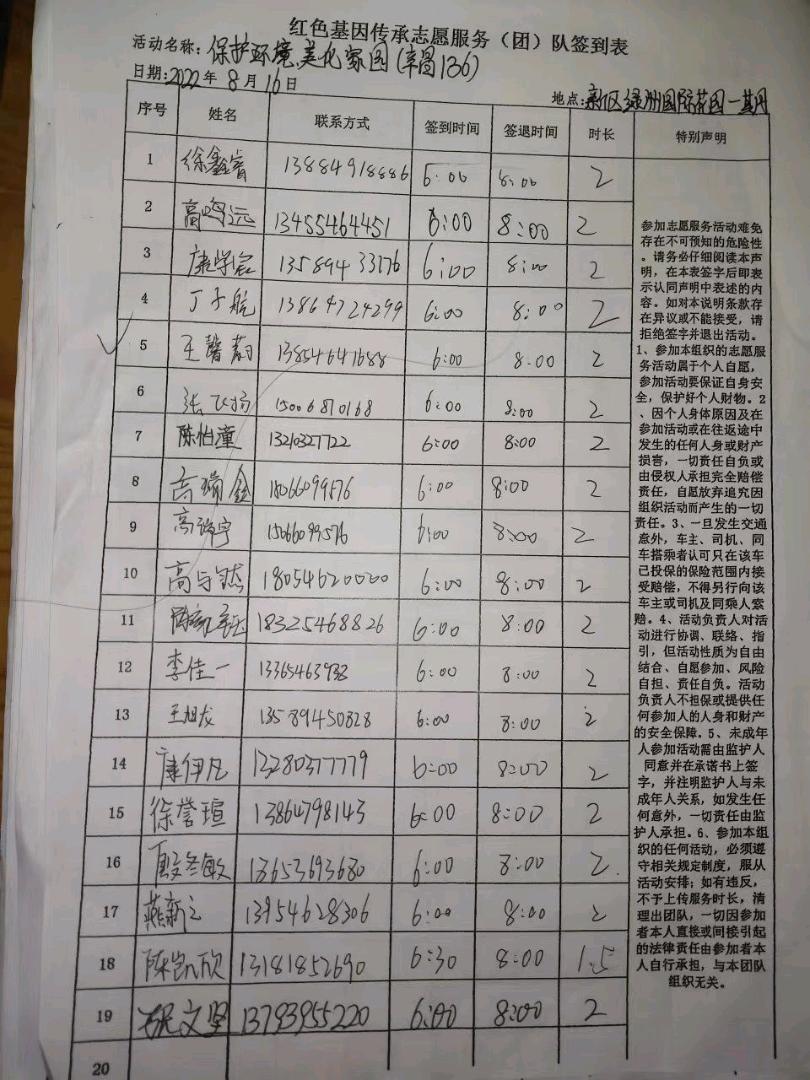 红色基因传承志愿服务（团）队签到表
活动名称：保护环境,美化家园(辛留136)
日期：2022年8月16日
地点：新区绿洲国际花园一期
序号 姓名 联系方式 签到时间 签退时间 时长 特别声明
1 徐鑫睿 13884918886 6:00 8:00 2
2 高鸣远 13455464451 6:00 8:00 2
3 康学宸 13589433176 6:00 8:00 2
4 丁子航 13864724299 6:00 8:00 2
5 王馨蔚 13854647688 6:00 8:00 2
6 张飞扬 15006870168 6:00 8:00 2
7 陈怡潼 13210327722 6:00 8:00 2
8 高瑞鑫 18066099576 6:00 8:00 2
9 高 宇 15066099576 6:00 8:00 2
10 高与然 18054620000 6:00 8:00 2
11 18325468826 6:00 8:00 2
12 李佳一 13365463938 6:00 8:00 2
13 王旭龙 13589450828 6:00 8:00 2
14 康伊凡 13280377779 6:00 8:00 2
15 徐誉瑄 13864798143 6:00 8:00 2
16 殷冬敏 13653693680 6:00 8:00 2.
17 燕新之 13954628306 6:00 8:00 2
18 陈凯欣 13181852690 6:30 8:00 1.5
19 倪文坚 13793955220 6:00 8:00 2
20
参加志愿服务活动难免
存在不可预知的危险性
。请务必仔细阅读本声
明，在本表签字后即表
示认同声明中表述的内
容。如对本说明条款存
在异议或不能接受，请
拒绝签字并退出活动。
1、参加本组织的志愿服
务活动属于个人自愿，
参加活动要保证自身安
全，保护好个人财物。2
、因个人身体原因及在
参加活动或在往返途中
发生的任何人身或财产
损害，一切责任自负或
由侵权人承担完全赔偿
责任，自愿放弃追究因
组织活动而产生的一切
责任。3、一旦发生交通
意外，车主、司机、同
车搭乘者认可只在该车
已投保的保险范围内接
受赔偿，不得另行向该
车主或司机及同乘人索
赔。4、活动负责人对活
动进行协调、联络、指
引，但活动性质为自由
结合、自愿参加、风险
自担、责任自负。活动
负责人不担保或提供任
何参加人的人身和财产
的安全保障。5、未成年
人参加活动需由监护人
同意并在承诺书上签
字，并注明监护人与未
成年人关系，如发生任
何意外，一切责任由监
护人承担。6、参加本组
织的任何活动，必须遵
守相关规定制度，服从
活动安排；如有违反，
不予上传服务时长，清
理出团队，一切因参加
者本人直接或间接引起
的法律责任由参加者本
人自行承担，与本团队
组织无关。